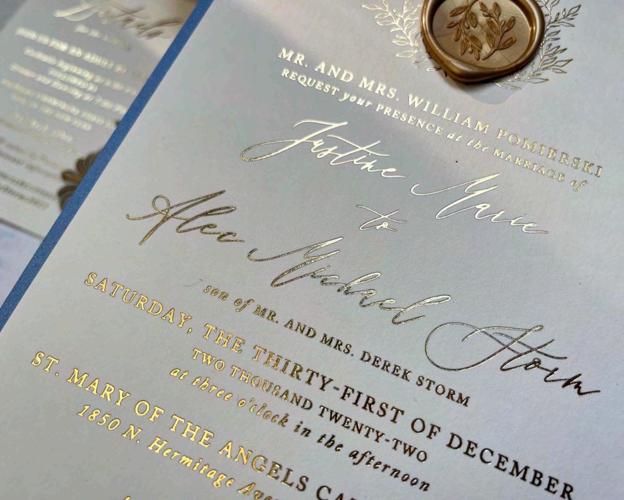 Details
MR. AND MRS. WILLIAM POMIERSKI
REQUEST your PRESENCE at the MARRIAGE of
Justine Marie
to
Alec Michael Storm
son of MR. AND MRS. DEREK STORM
SATURDAY, THE THIRTY-FIRST OF DECEMBER
TWO THOUSAND TWENTY-TWO
at three o'clock in the afternoon
ST. MARY OF THE ANGELS
1850 N. Hermitage